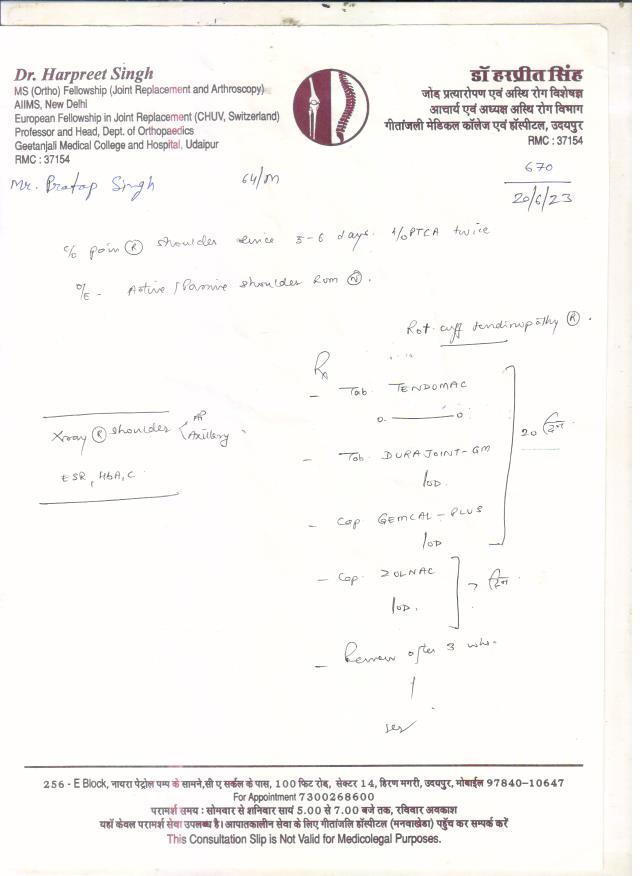 Dr. Harpreet Singh
MS (Ortho) Fellowship (Joint Replacement and Arthroscopy)
AIIMS, New Delhi
European Fellowship in Joint Replacement (CHUV, Switzerland)
Professor and Head, Dept. of Orthopaedics
Geetanjali Medical College and Hospital, Udaipur
RMC : 37154
डॉ हरप्रीत सिंह
जोड़ प्रत्यारोपण एवं अस्थि रोग विशेषज्ञ
आचार्य एवं अध्यक्ष अस्थि रोग विभाग
गीतांजली मेडिकल कॉलेज एवं हॉस्पीटल, उदयपुर
RMC : 37154
Mr. Pratap Singh 64/M
670
20/6/23
c/o pain (R) shoulder since 5-6 days. h/o PTCA twice
o/E - Active / Passive shoulder ROM (N).
Rot. cuff tendinopathy (R).
Rx
- Tab. TENDOMAC
0 — 0
- Tab. DURAJOINT-GM
1 OD.
- Cap GEMCAL-PLUS
1 OD
20 दिन
- Cap. ZOLNAC
1 OD.
7 दिन
- Review after 3 wks.
Xray (R) shoulder < AP
Axillary
ESR, HbA1C
256 - E Block, नायरा पेट्रोल पम्प के सामने, सी ए सर्कल के पास, 100 फिट रोड, सेक्टर 14, हिरण मगरी, उदयपुर, मोबाईल 97840-10647
For Appointment 7300268600
परामर्श समय : सोमवार से शनिवार सायं 5.00 से 7.00 बजे तक, रविवार अवकाश
यहाँ केवल परामर्श सेवा उपलब्ध है। आपातकालीन सेवा के लिए गीतांजलि हॉस्पीटल (मनवाखेडा) पहुँच कर सम्पर्क करें
This Consultation Slip is Not Valid for Medicolegal Purposes.